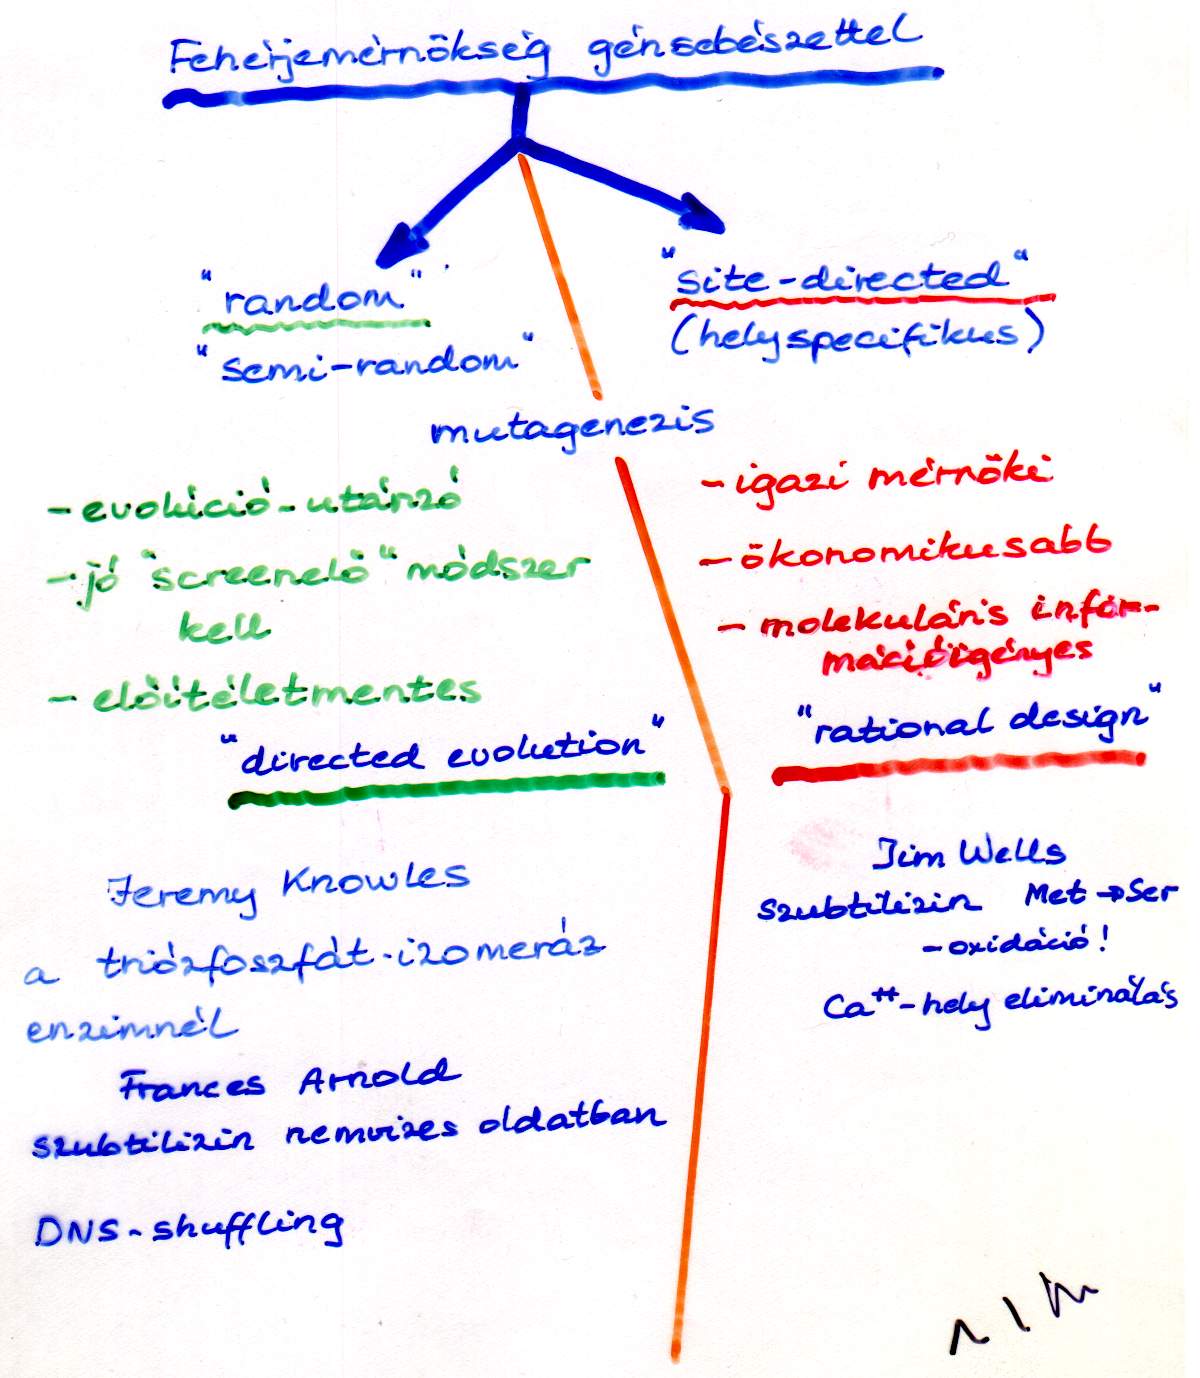 Fehérjemérnökség génsebészettel
"random"
"semi-random"
"site-directed"
(helyspecifikus)
mutagenezis
- evolúció-utánzó
- jó "screenelő" módszer
kell
- előítéletmentes
"directed evolution"
Jeremy Knowles
a triózfoszfát-izomeráz
enzimnél
Frances Arnold
szubtilizin nemvizes oldatban
DNS-shuffling
- igazi mérnöki
- ökonomikusabb
- molekuláris infor-
mációigényes
"rational design"
Jim Wells
szubtilizin Met → Ser
- oxidáció!
Ca⁺⁺-hely eliminálás